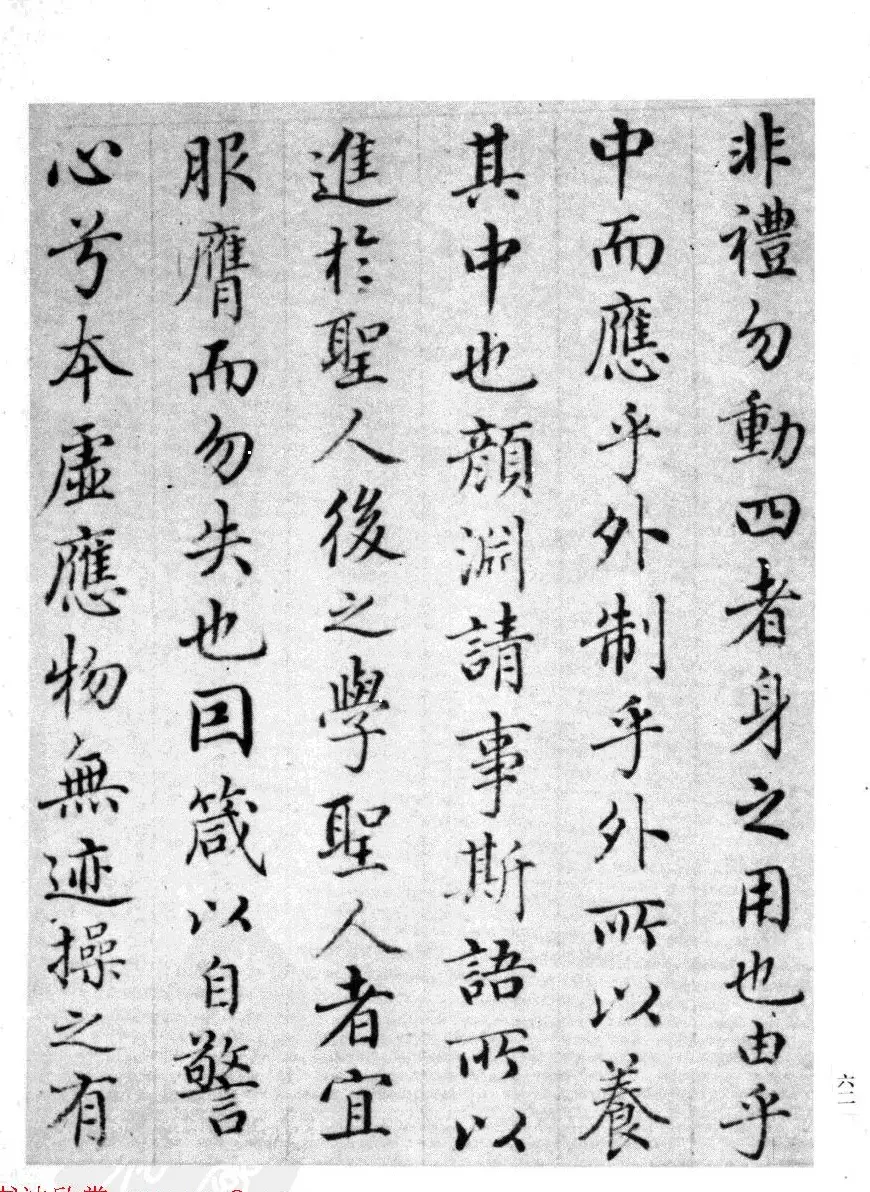 非禮勿動四者身之用也由乎
中而應乎外制乎外所以養
其中也顏淵請事斯語所以
進於聖人後之學聖人者宜
服膺而勿失也回箴以自警
心兮本虛應物無迹操之有
六二